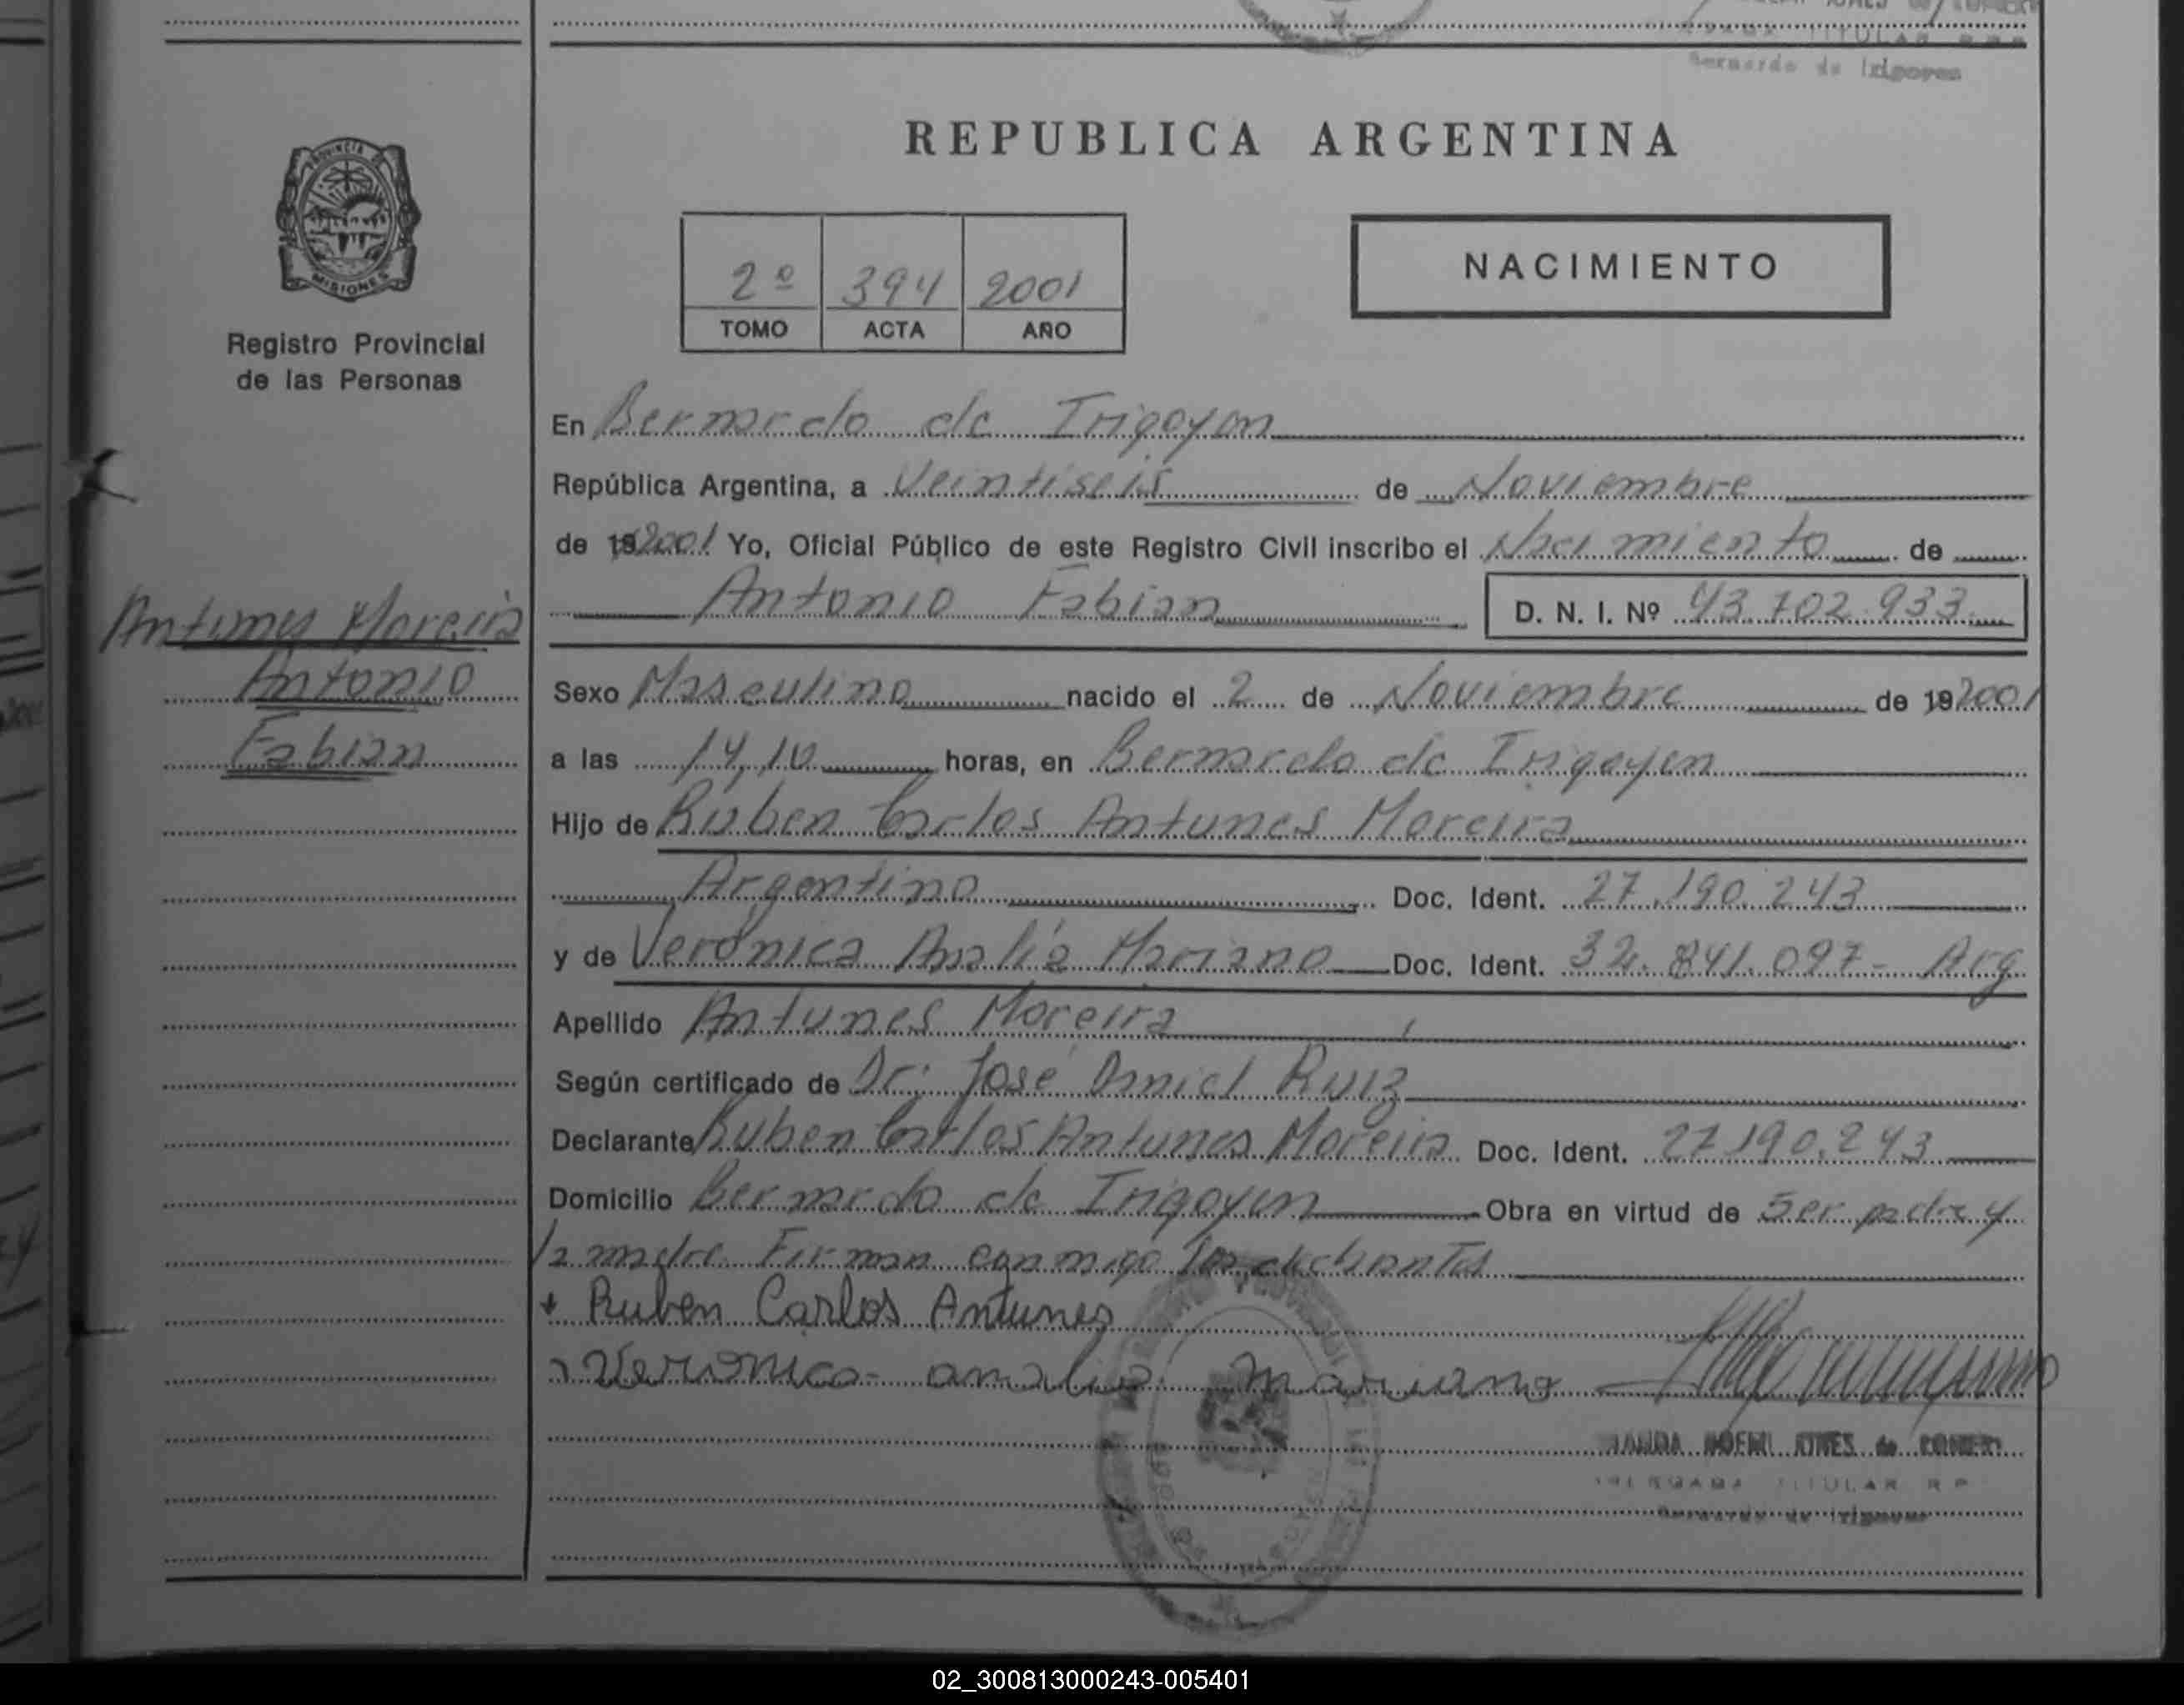 Bernardo de Irigoyen
REPUBLICA ARGENTINA
PROVINCIA DE
MISIONES
Registro Provincial
de las Personas
2º 394 2001
TOMO ACTA AÑO
NACIMIENTO
En Bernardo de Irigoyen
República Argentina, a Veintiseis de Noviembre
de 19 2001 Yo, Oficial Público de este Registro Civil inscribo el Nacimiento de
Antonio Fabian D. N. I. Nº 43.702.933
Antunes Moreira
Antonio
Fabian
Sexo Masculino nacido el 2 de Noviembre de 19 2001
a las 14,10 horas, en Bernardo de Irigoyen
Hijo de Ruben Carlos Antunes Moreira
Argentino Doc. Ident. 27.190.243
y de Verónica Analía Mariano Doc. Ident. 32.841.097- Arg
Apellido Antunes Moreira
Según certificado de Dr: José Daniel Ruiz
Declarante Ruben Carlos Antunes Moreira Doc. Ident. 27.190.243
Domicilio Bernardo de Irigoyen Obra en virtud de ser padre y
la madre Firman conmigo los declarantes
+ Ruben Carlos Antunes
Veronica analia Mariano
NOEMI de
TITULAR R P
Bernardo de Irigoyen
02_300813000243-005401